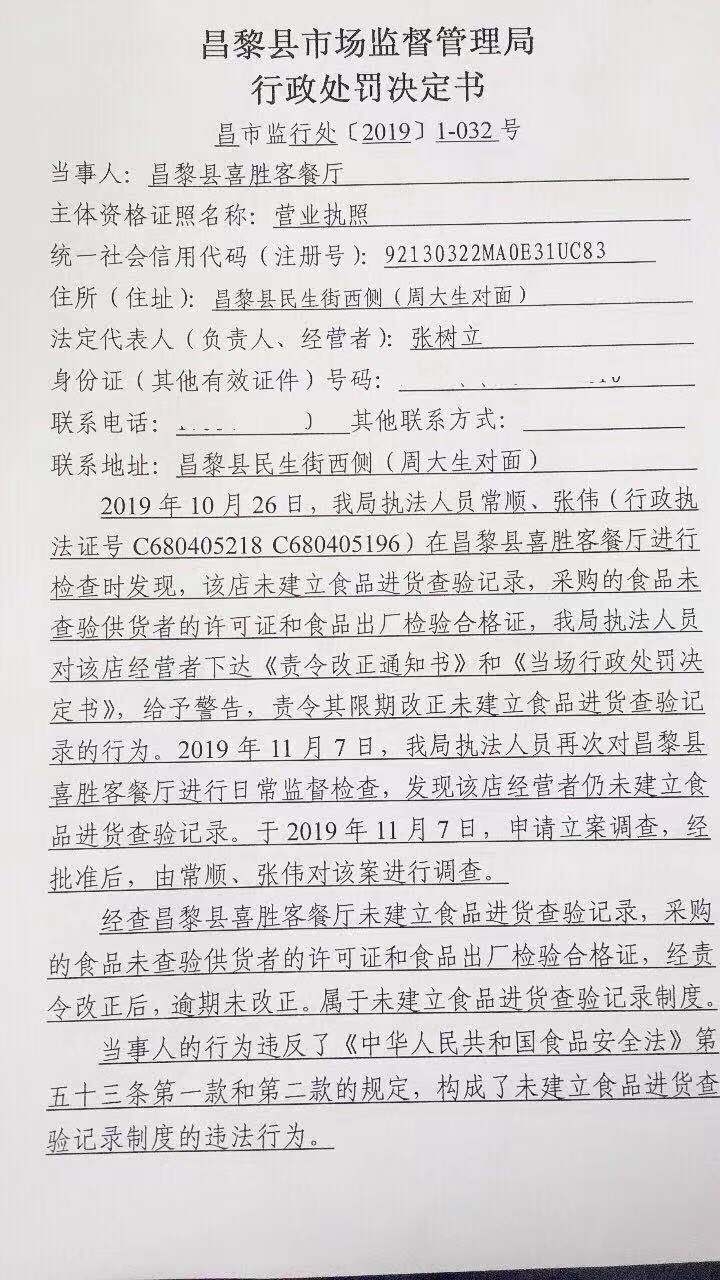 昌黎县市场监督管理局
行政处罚决定书
昌市监行处〔2019〕1-032 号
当事人：昌黎县喜胜客餐厅
主体资格证照名称：营业执照
统一社会信用代码（注册号）：92130322MA0E31UC83
住所（住址）：昌黎县民生街西侧（周大生对面）
法定代表人（负责人、经营者）：张树立
身份证（其他有效证件）号码：
联系电话： 其他联系方式：
联系地址：昌黎县民生街西侧（周大生对面）
2019 年 10 月 26 日，我局执法人员常顺、张伟（行政执
法证号 C680405218 C680405196）在昌黎县喜胜客餐厅进行
检查时发现，该店未建立食品进货查验记录，采购的食品未
查验供货者的许可证和食品出厂检验合格证，我局执法人员
对该店经营者下达《责令改正通知书》和《当场行政处罚决
定书》，给予警告，责令其限期改正未建立食品进货查验记
录的行为。2019 年 11 月 7 日，我局执法人员再次对昌黎县
喜胜客餐厅进行日常监督检查，发现该店经营者仍未建立食
品进货查验记录。于 2019 年 11 月 7 日，申请立案调查，经
批准后，由常顺、张伟对该案进行调查。
经查昌黎县喜胜客餐厅未建立食品进货查验记录，采购
的食品未查验供货者的许可证和食品出厂检验合格证，经责
令改正后，逾期未改正。属于未建立食品进货查验记录制度。
当事人的行为违反了《中华人民共和国食品安全法》第
五十三条第一款和第二款的规定，构成了未建立食品进货查
验记录制度的违法行为。